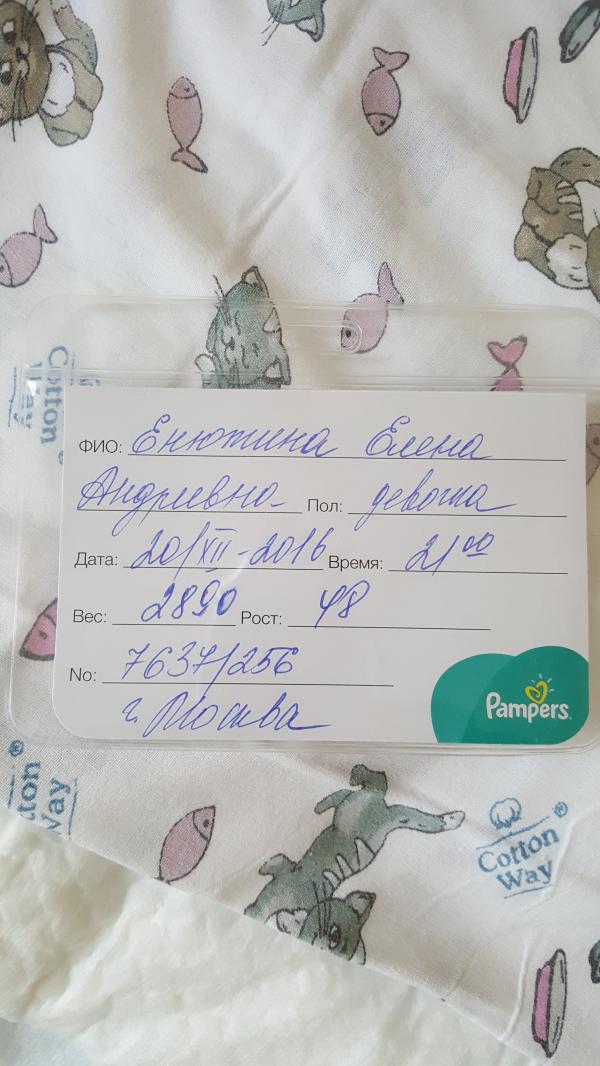 Cotton
Way
ФИО: Енютина Елена
Андриевна Пол: девочка
Дата: 20/XII-2016 Время: 21⁰⁰
Вес: 2890 Рост: 48
No: 7637/256
г. Москва
Pampers
®
tton
Way
®
Cotton
Way